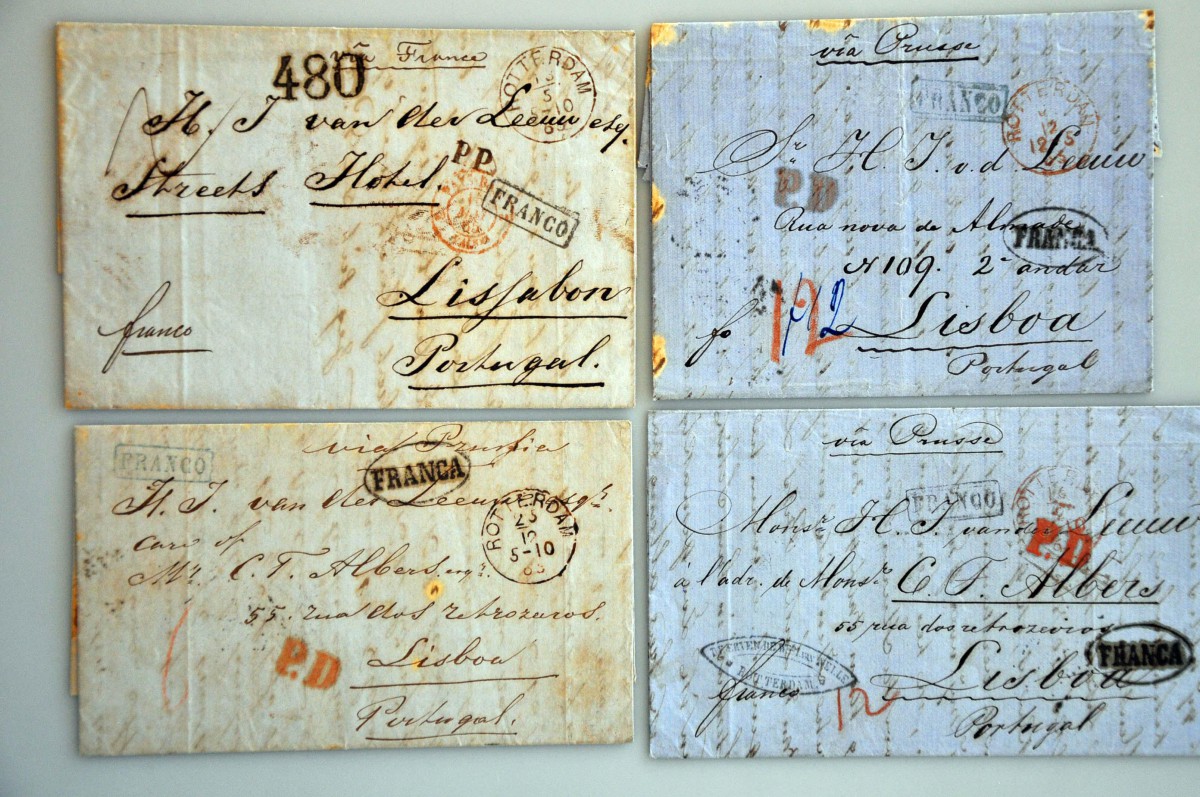 via France
480
ROTTERDAM
5
H. J van der Leeuw esq.
P.P.
Streets Hotel.
FRANCO
Lissabon
franco
Portugal.
via Prusse
FRANCO
ROTTERDAM
12
Sr. H. J. v. d. Leeuw
P.D
Rua nova de Almada
FRANCA
N 109. 2º andar
fo 12 12 Lisboa
Portugal
via Prussia
FRANCO
FRANCA
H. J. van der Leeuw esqr.
ROTTERDAM
23
12
5-10
care of
Mr. C. F. Albers, esqr.
55. rua dos retrozeiros.
P.D
Lisboa
Portugal.
via Prusse
FRANCO
Monsr. H. J. van der Leeuw
P.D
à l'adr. de Monsr. C. F. Albers
55 rua dos retrozeiros
FRANCA
ROTTERDAM.
franco 12 Lisboa
Portugal